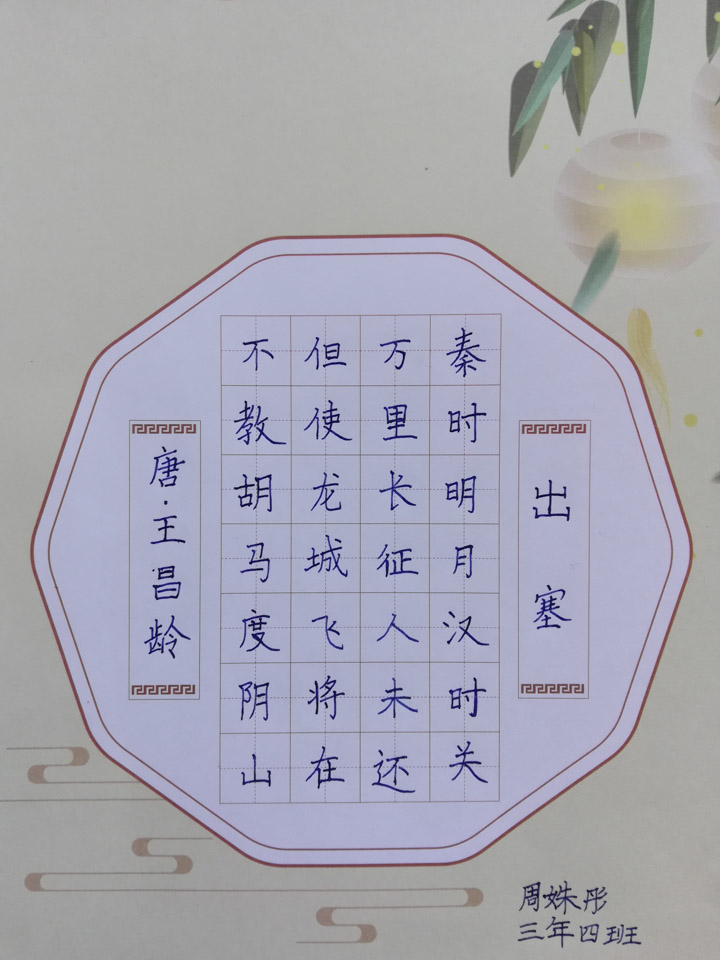 出塞
秦时明月汉时关
万里长征人未还
但使龙城飞将在
不教胡马度阴山
唐·王昌龄
周姝彤
三年四班